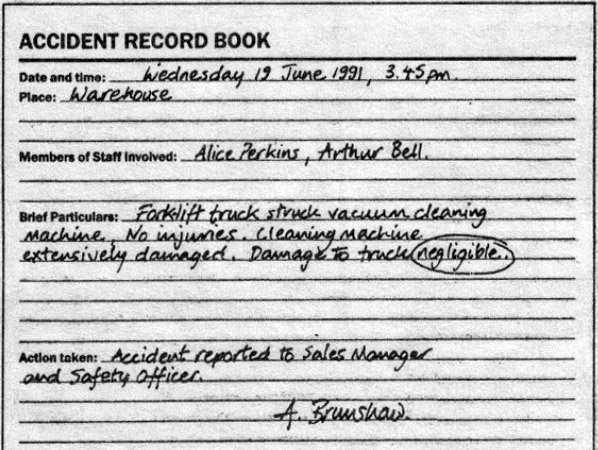 ACCIDENT RECORD BOOK
Date and time: Wednesday 19 June 1991, 3.45pm.
Place: Warehouse
Members of Staff Involved: Alice Perkins, Arthur Bell.
Brief Particulars: Forklift truck struck vacuum cleaning
machine. No injuries. Cleaning machine
extensively damaged. Damage to truck negligible.
Action taken: Accident reported to Sales Manager
and Safety Officer.
A. Brunshaw.